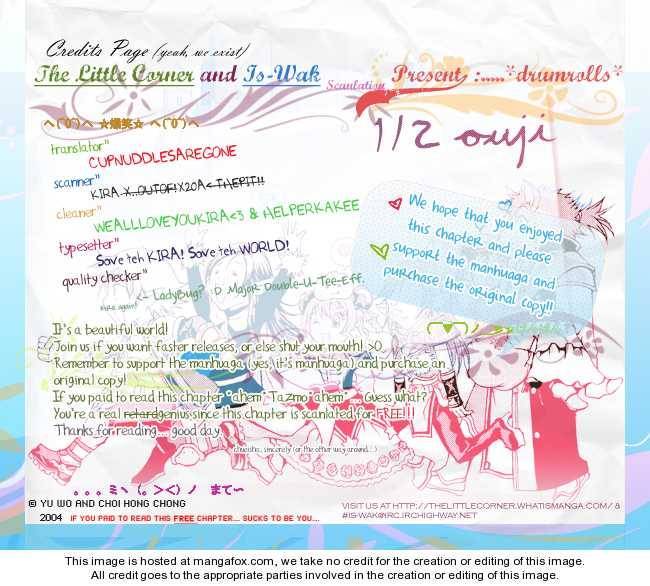 Credits Page (yeah, we exist)
The Little Corner and Is-Wak Scanlation Present, :.....*drumrolls*
1/2 ouji
translator"
CUPNUDDLESAREGONE
scanner"
KIRA X...OUTOF!X20A< THEPIT!!
cleaner"
WEALLLOVEYOUKIRA<3 & HELPERKAKEE
typesetter"
Save teh KIRA! Save teh WORLD!
quality checker"
<- LadyBug? :D MaJoR Double-U-Tee-Eff.
kira again!
We hope that you enjoyed
this chapter and please
support the manhuaga and
purchase the original copy!!
It's a beautiful world!
Join us if you want faster releases, or else shut your mouth! >:O
Remember to support the manhuaga (yes, it's manhuaga) and purchase an
original copy!
If you paid to read this chapter *ahem* Tazmo *ahem* ... Guess what?
You're a real retard genius since this chapter is scanlated for FREE!!!
Thanks for reading.... good day.
。。。ミヽ（。＞＜）ノ まて～
© YU WO AND CHOI HONG CHONG
2004 IF YOU PAID TO READ THIS FREE CHAPTER... SUCKS TO BE YOU...
VISIT US AT HTTP://THELITTLECORNER.WHATISMANGA.COM/ &
#IS-WAK@IRC.IRCHIGHWAY.NET
This image is hosted at mangafox.com, we take no credit for the creation or editing of this image.
All credit goes to the appropriate parties involved in the creation or editing of this image.